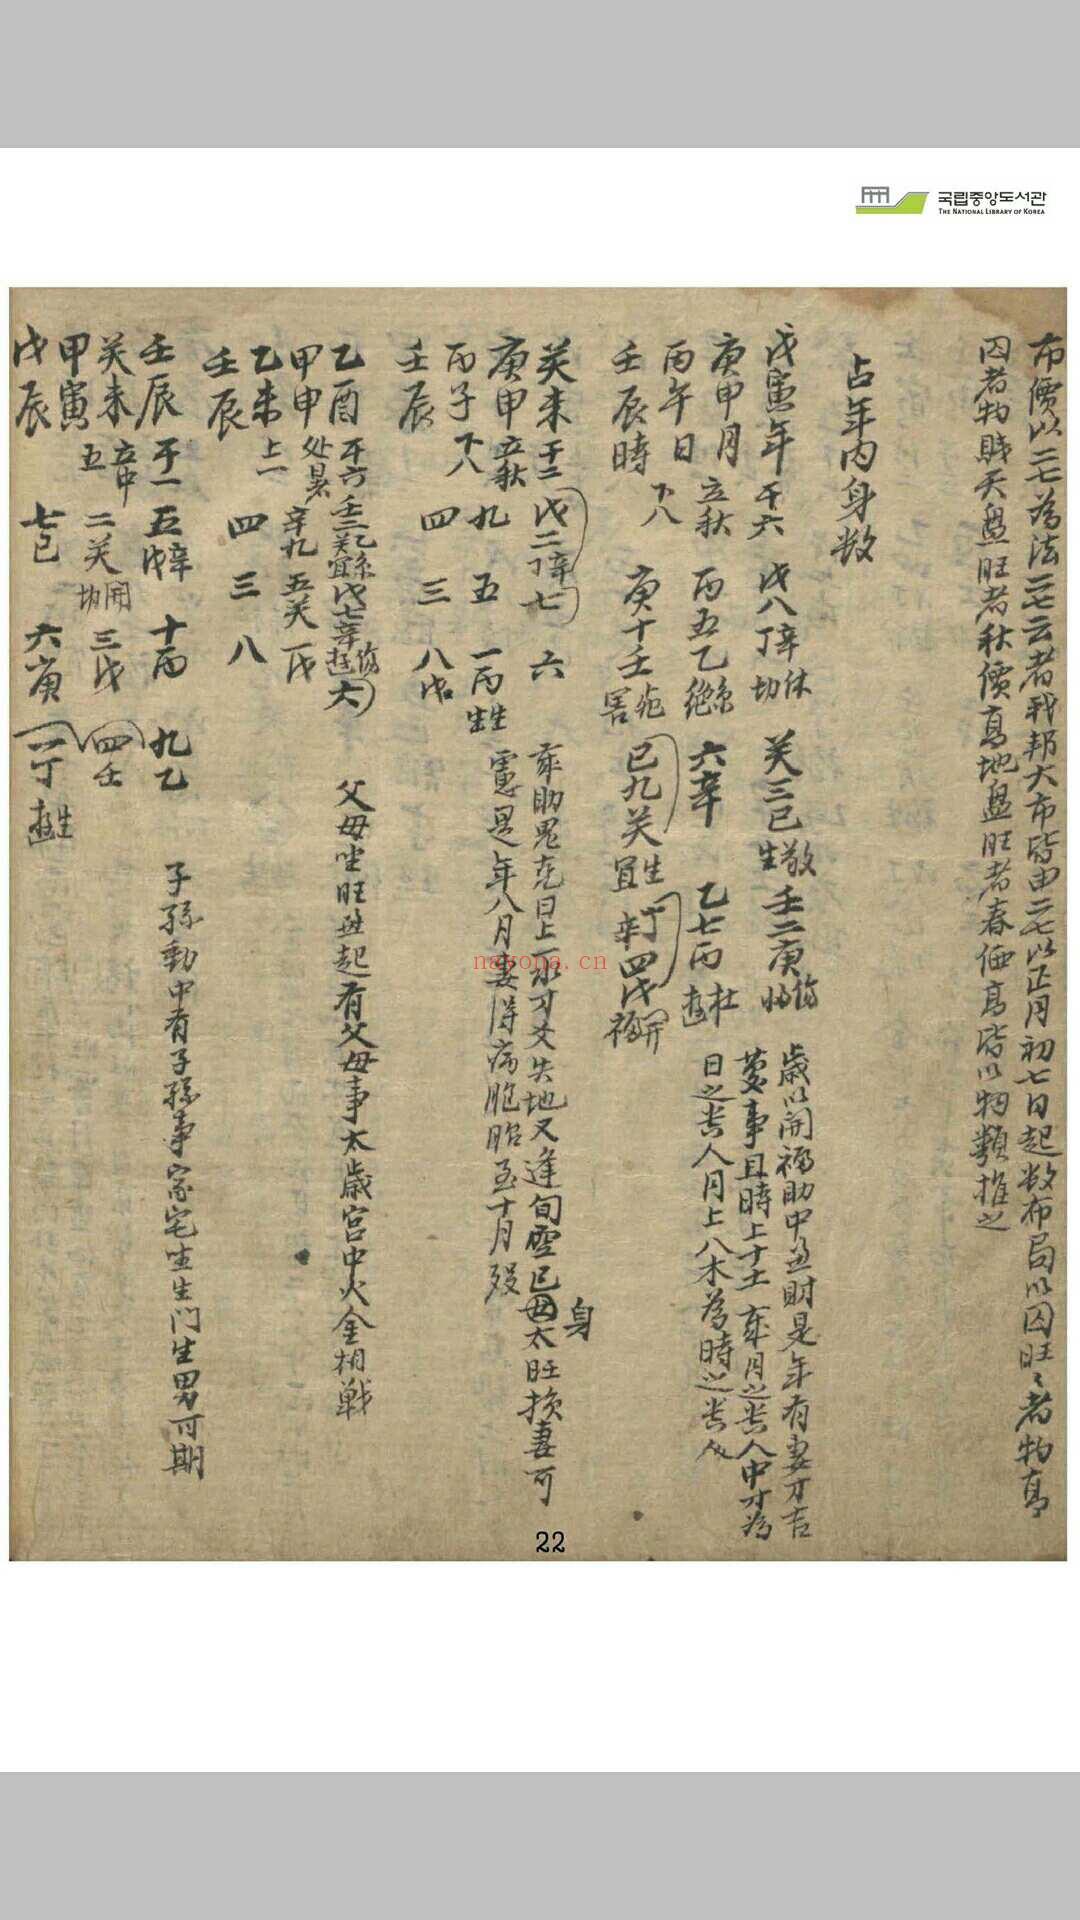 국립중앙도서관
THE NATIONAL LIBRARY OF KOREA
布價以二七為法二七云者我邦大布皆由二七以正月初七日起数布局以囚旺〻者物高
囚者物賤天盤旺者秋價高地盤旺者春価高皆以物類推之
占年内身数
戊寅年 干六 戊八丁辛休 癸三己生 壬二庚傷
庚申月 立秋 丙五乙 六辛 乙七丙杜
丙午日 下八 庚十壬 己九癸生宜 辛丁四戊開福
壬辰時
歲以開福助中並財是年有妻才吉
慶事且時上十土 年月之贵人中才為
日之贵人月上八木為時之贵人
癸未 干二 戊二丁辛七 六
庚申 立秋 九 五 一丙生
丙子 下八 四 三 八戊
壬辰
年助鬼克日上一水才爻失地又逢旬空已身母太旺损妻可
慮是年八月妻得病胞胎至十月殁
乙酉 干六 壬二乙癸宜 戊七辛傷 六
甲申 处暑 辛九 五癸 一戊
乙未 上一 四 三 八
壬辰
父母坐旺並起有父母事太歲宫中火金相戦
壬辰 干一 五戊辛 十丙 九乙
癸未 五 二癸開 三戊 四壬
甲寅 七己 六庚 一丁生
戊辰
子孫動中有子孫事家宅坐生门生男可期
nayona.cn
22